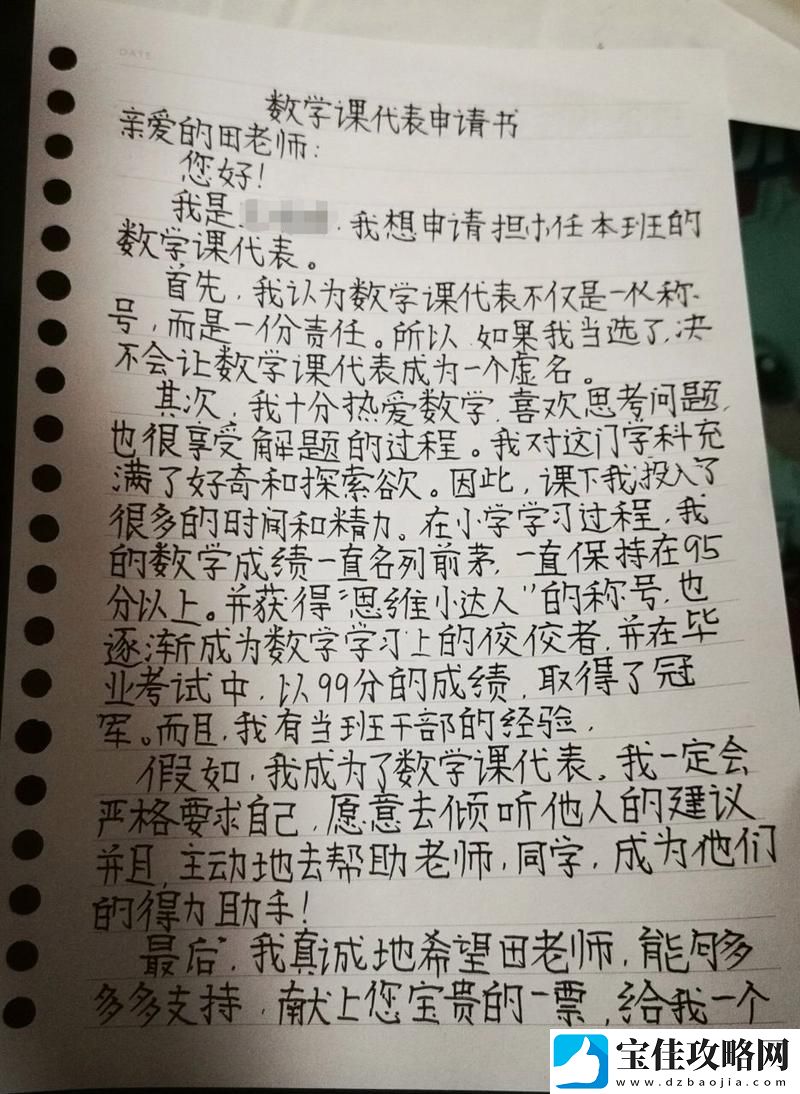 DATE
数学课代表申请书
亲爱的田老师:
您好!
我是 我想申请担任本班的
数学课代表。
首先,我认为数学课代表不仅是一份称
号,而是一份责任。所以 如果我当选了,决
不会让数学课代表成为一个虚名。
其次,我十分热爱数学,喜欢思考问题,
也很享受解题的过程。我对这门学科充
满了好奇和探索欲。因此,课下我投入了
很多的时间和精力。在小学学习过程,我
的数学成绩一直名列前茅,一直保持在95
分以上。并获得“思维小达人”的称号,也
逐渐成为数学学习上的佼佼者,并在毕
业考试中,以99分的成绩,取得了冠
军。而且,我有当班干部的经验,
假如,我成为了数学课代表。我一定会
严格要求自己,愿意去倾听他人的建议
并且,主动地去帮助老师,同学,成为他们
的得力助手!
最后,我真诚地希望田老师,能够多
多多支持,献上您宝贵的一票,给我一个
宝佳攻略网
www.dzbaojia.com